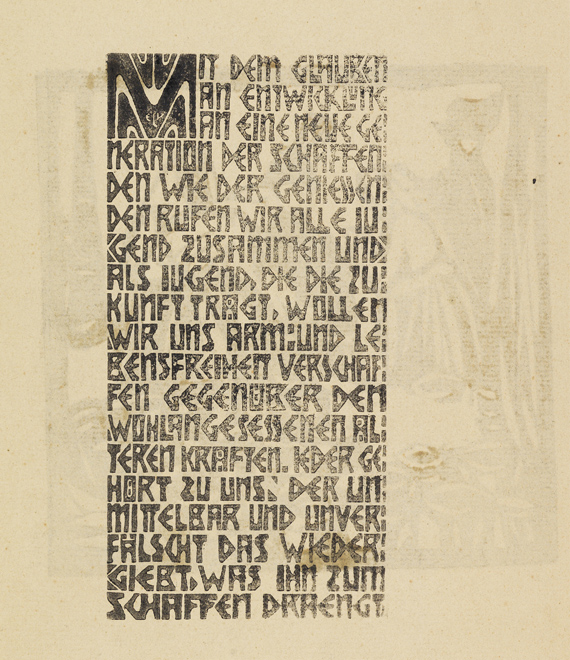 MIT DEM GLAUBEN
AN ENTWICKLUNG
AN EINE NEUE GE
NERATION DER SCHAFFEN:
DEN WIE DER GENIESSEN:
DEN RUFEN WIR ALLE IU:
GEND ZUSAMMEN UND
ALS IUGEND, DIE DIE ZU:
KUNFT TRÄGT, WOLLEN
WIR UNS ARM:UND LE:
BENSFREIHEIT VERSCHAF:
FEN GEGENÜBER DEN
WOHLANGESESSENEN ÄL:
TEREN KRÄFTEN. IEDER GE
HÖRT ZU UNS, DER UN:
MITTELBAR UND UNVER:
FÄLSCHT DAS WIEDER:
GIEBT, WAS IHN ZUM
SCHAFFEN DRAENGT.